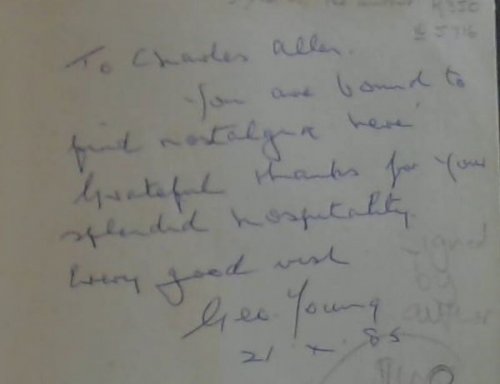 To Charles Allen.
You are bound to
find nostalgia here
Grateful thanks for your
splendid hospitality
Every good wish
Geo. Young
21 . x . 85
signed
by
author